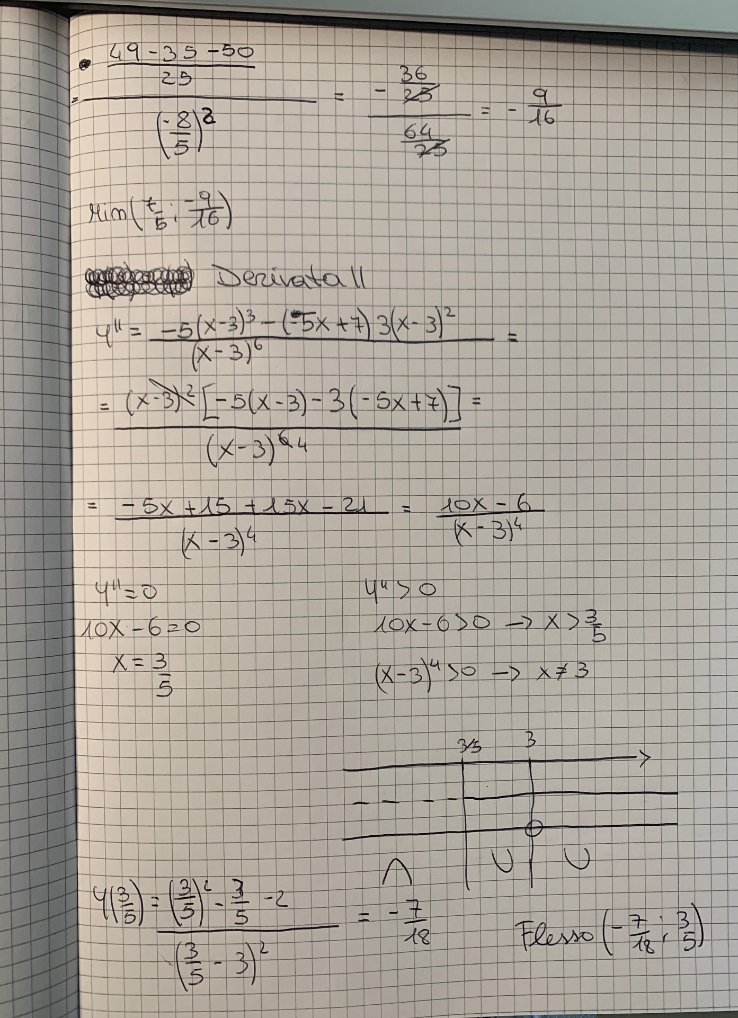 = ((49 - 35 - 50)/25)/(-8/5)² = (-36/25)/(64/25) = - 9/16
Min(7/5 ; -9/16)
Derivata II
y'' = (-5(x-3)³ - (-5x+7) 3(x-3)²)/(x-3)⁶ =
= ((x-3)² [-5(x-3) - 3(-5x+7)])/(x-3)⁶ ⁴ =
= (-5x + 15 + 15x - 21)/(x-3)⁴ = (10x - 6)/(x-3)⁴
y'' = 0 y'' > 0
10x - 6 = 0 10x - 6 > 0 → x > 3/5
x = 3/5 (x-3)⁴ > 0 → x ≠ 3
3/5 3
y(3/5) = ((3/5)² - 3/5 - 2)/(3/5 - 3)² = - 7/18 Flesso (-7/18 ; 3/5)